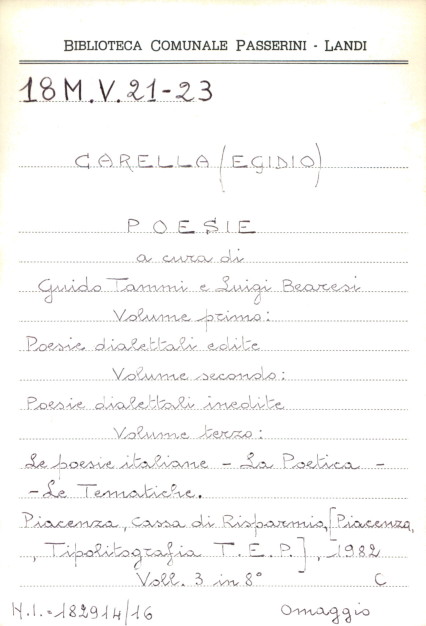 BIBLIOTECA COMUNALE PASSERINI - LANDI
18 M.V. 21-23
CARELLA (EGIDIO)
POESIE
a cura di
Guido Tammi e Luigi Bearesi
Volume primo:
Poesie dialettali edite
Volume secondo:
Poesie dialettali inedite
Volume terzo:
Le poesie italiane - La Poetica -
- Le Tematiche.
Piacenza, Cassa di Risparmio, [Piacenza,
, Tipolitografia T.E.P.], 1982
Voll. 3 in 8° C
N.I. = 182914/16 Omaggio